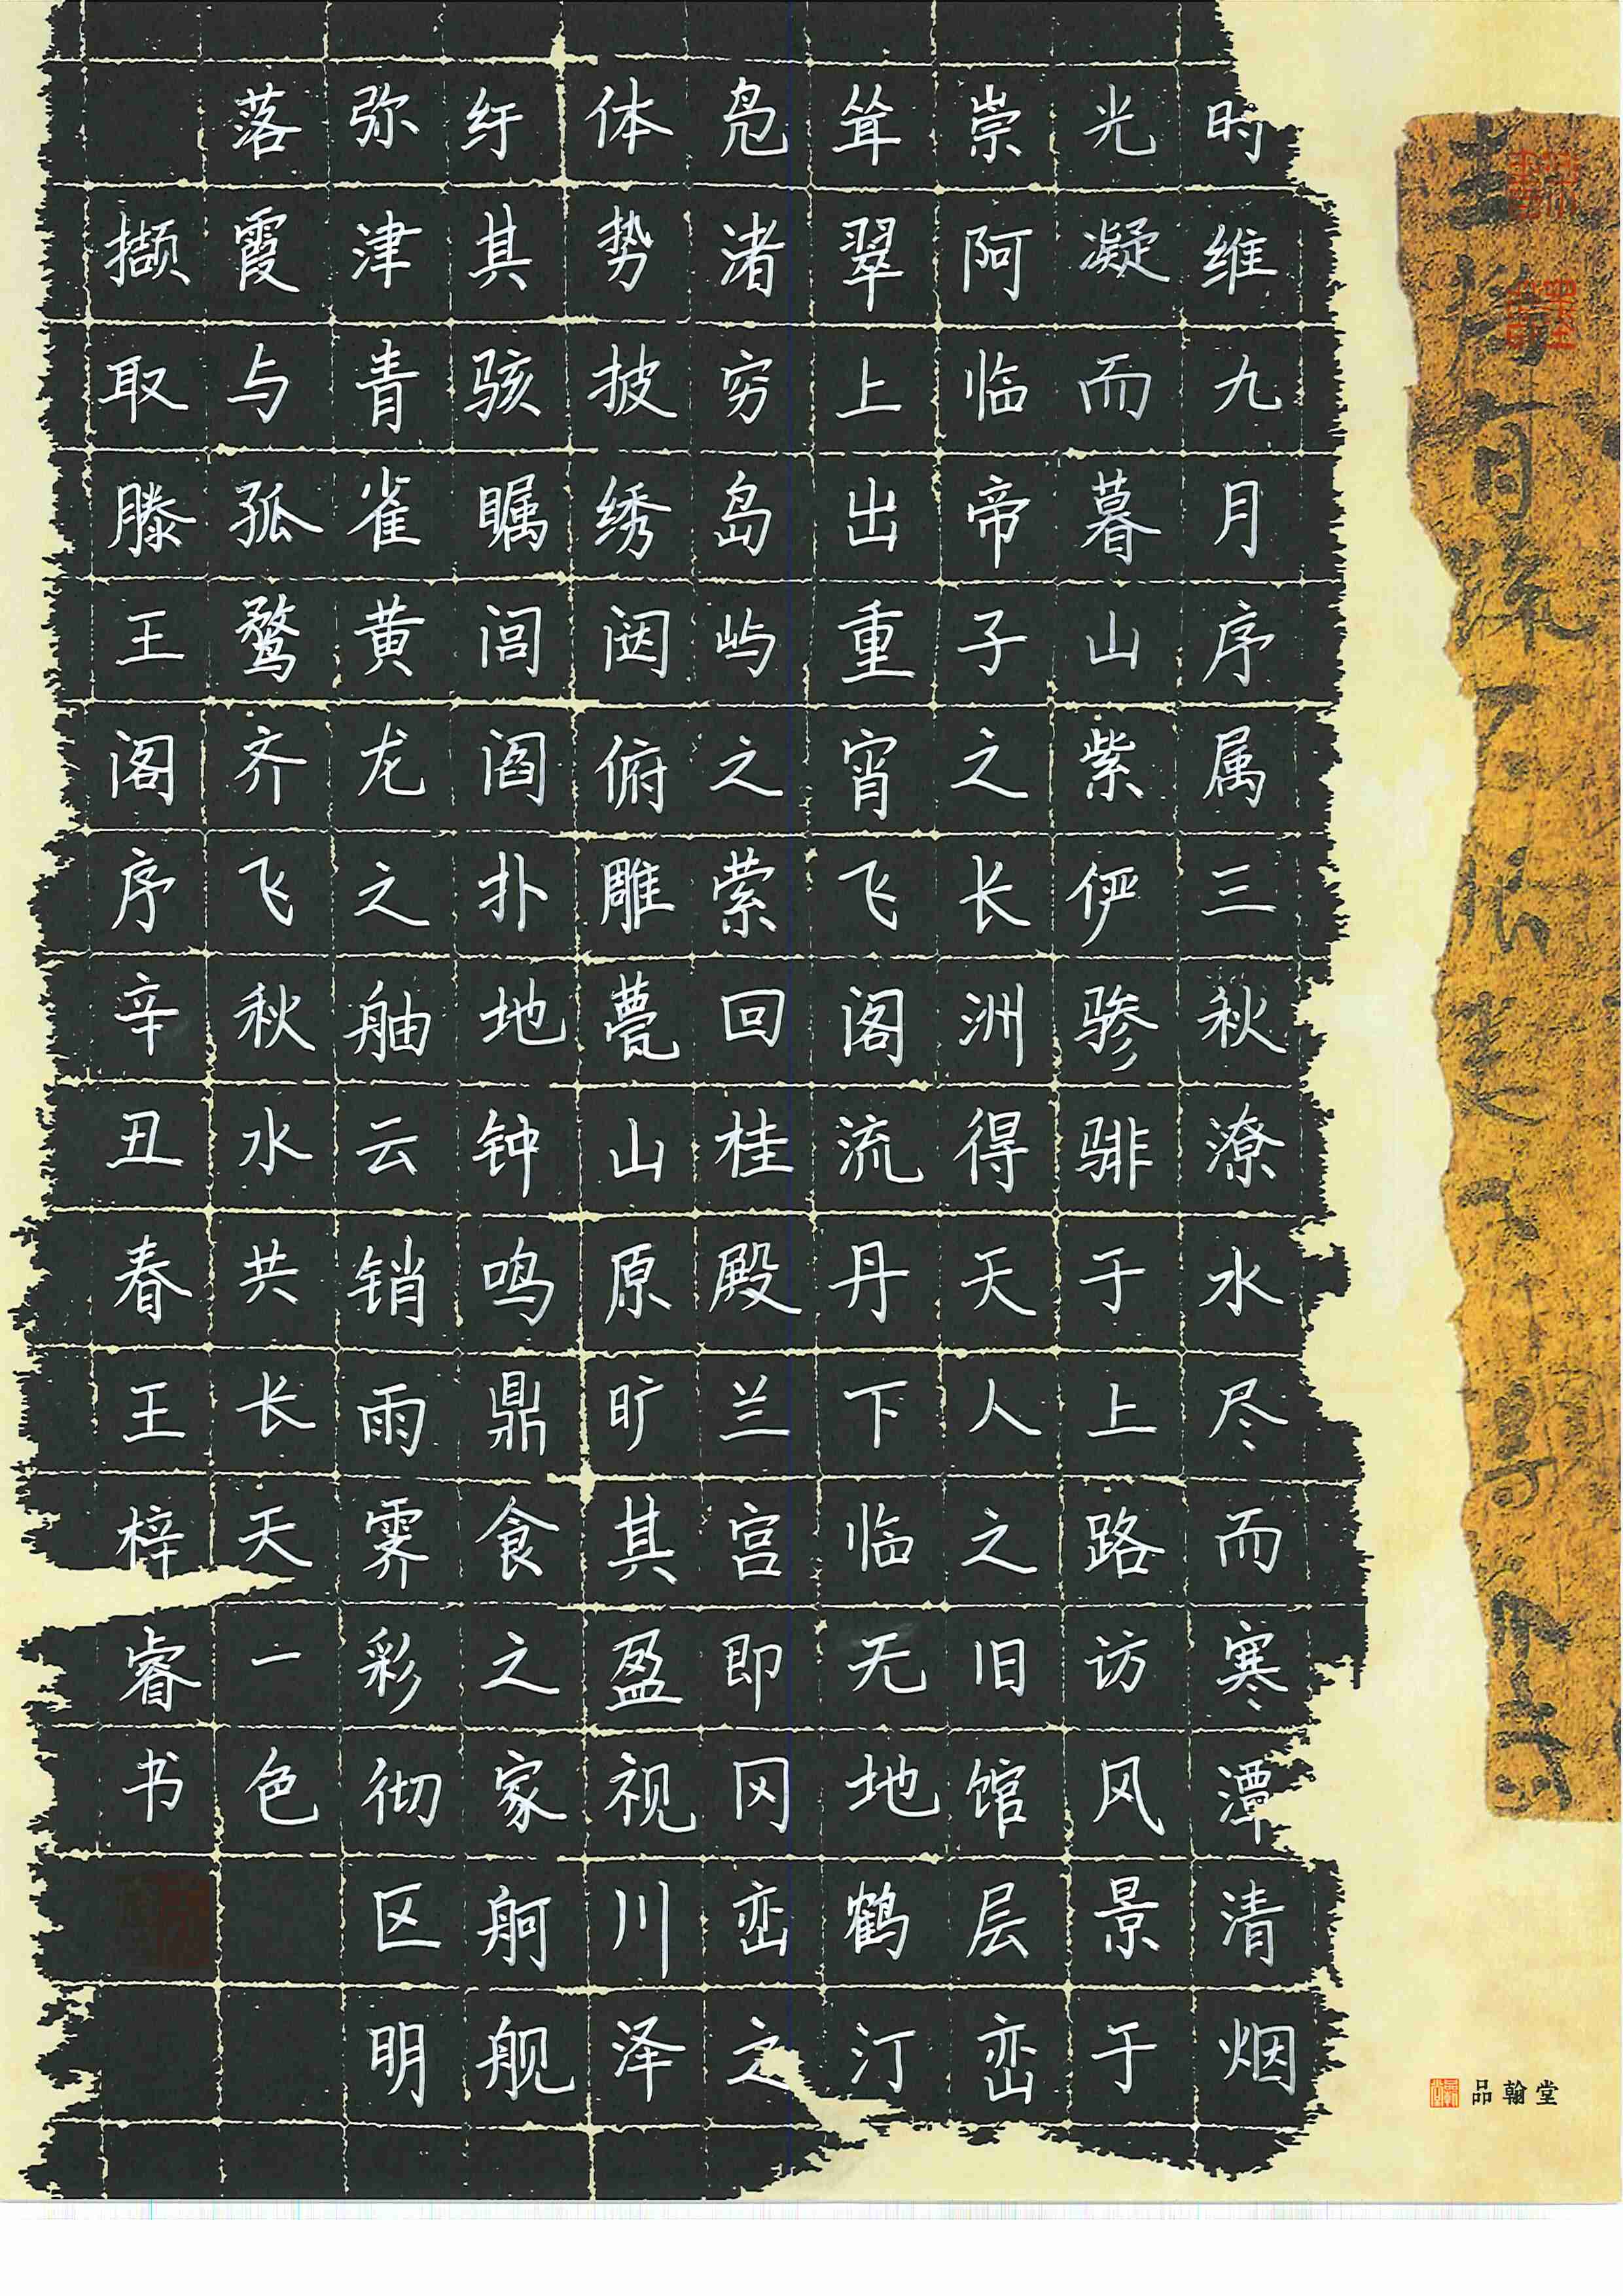 时维九月序属三秋潦水尽而寒潭清烟
光凝而暮山紫俨骖𬴂于上路访风景于
崇阿临帝子之长洲得天人之旧馆层峦
耸翠上出重宵飞阁流丹下临无地鹤汀
凫渚穷岛屿之萦回桂殿兰宫即冈峦之
体势披绣闼俯雕甍山原旷其盈视川泽
纡其骇瞩闾阎扑地钟鸣鼎食之家舸舰
弥津青雀黄龙之舳云销雨霁彩彻区明
落霞与孤鹜齐飞秋水共长天一色
撷取滕王阁序辛丑春王梓睿书
品翰堂